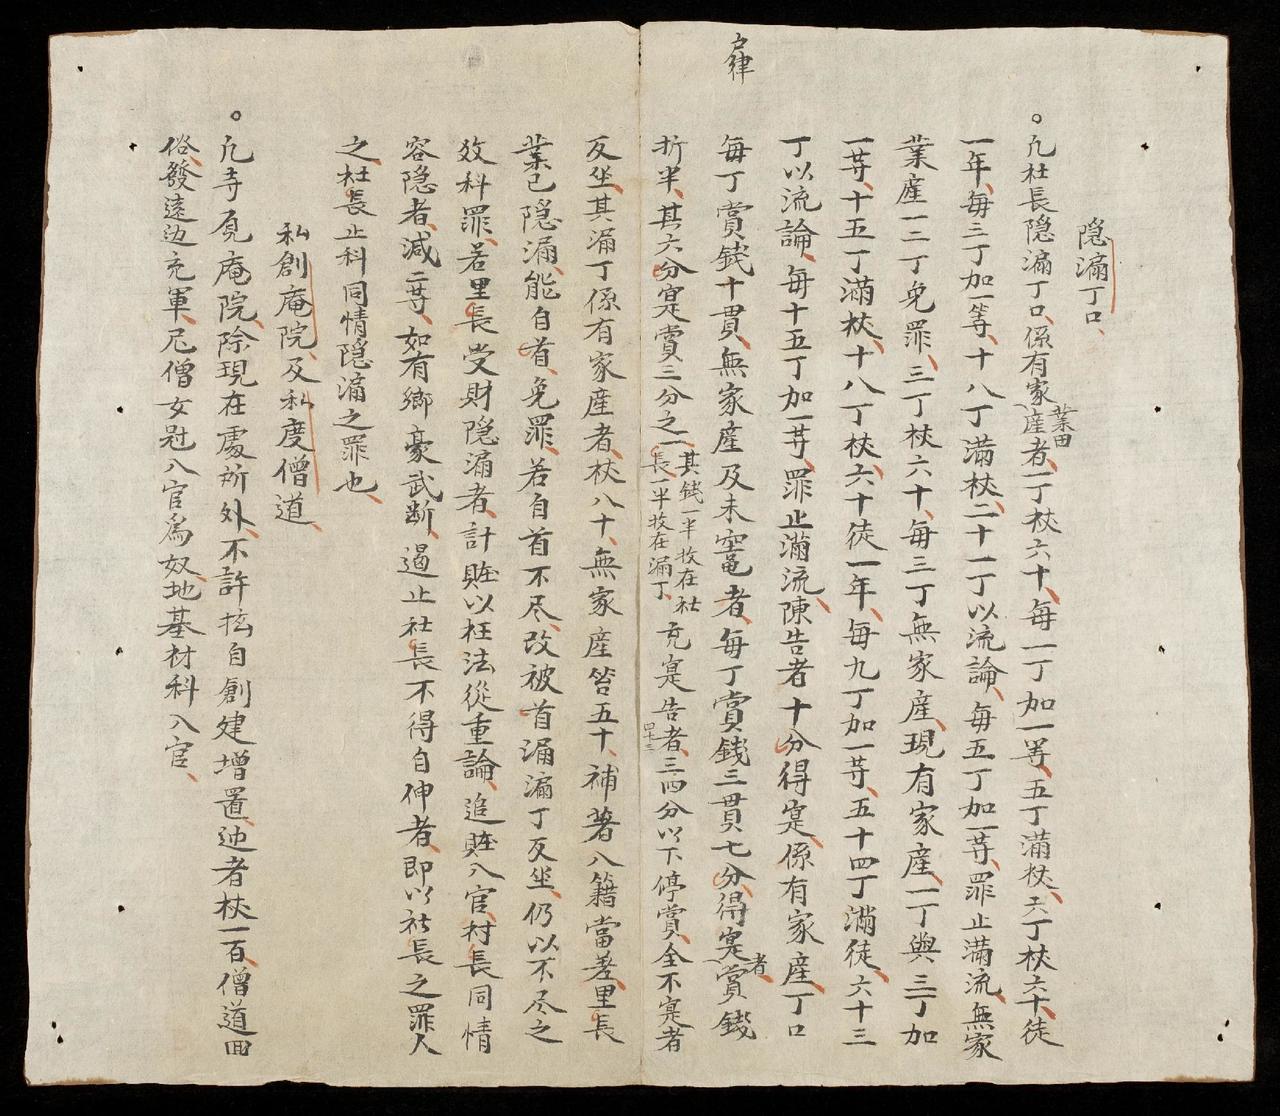 户律
隐漏丁口
凡社長隐漏丁口係有家産業田者一丁杖六十每一丁加一等五丁滿杖六丁杖六十徒
一年每三丁加一等十八丁滿杖二十一丁以流論每五丁加一等罪止滿流無家
業産一二丁免罪三丁杖六十每三丁無家産現有家産一丁與三丁加
一等十五丁滿杖十八丁杖六十徒一年每九丁加一等五十四丁滿徒六十三
丁以流論每十五丁加一等罪止滿流陳告者十分得寔係有家産丁口
每丁賞錢十貫無家産及未窀者每丁賞錢三貫七分得寔者賞錢
折半其六分寔賞三分之一其錢一半收在社長一半收在漏丁充寔告者三四分以下停賞全不寔者
四十二
反坐其漏丁係有家産者杖八十無家産笞五十補著入籍當差里長
業已隐漏能自首免罪若自首不尽改被首漏漏丁反坐仍以不尽之
效科罪若里長受財隐漏者計賍以枉法從重論追賍入官村長同情
容隐者减二等如有鄉豪武断遏止社長不得自伸者即以社長之罪人
之社長止科同情隐漏之罪也
私創庵院及私度僧道
凡寺庵院除現在處所外不許擅自創建增置迆者杖一百僧道囬
俗發遠边充軍尼僧女冠入官爲奴地基材料入官